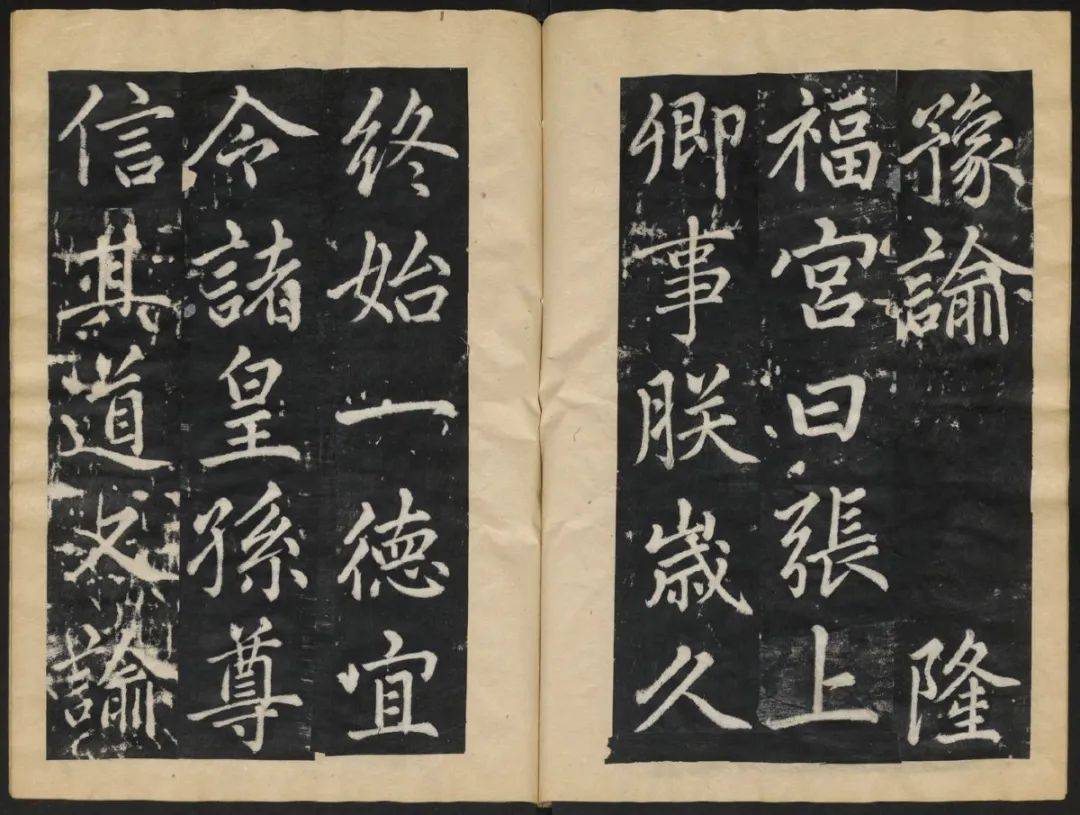 豫諭隆
福宮曰張上
卿事朕歲久
終始一德宜
令諸皇孫尊
信其道又諭